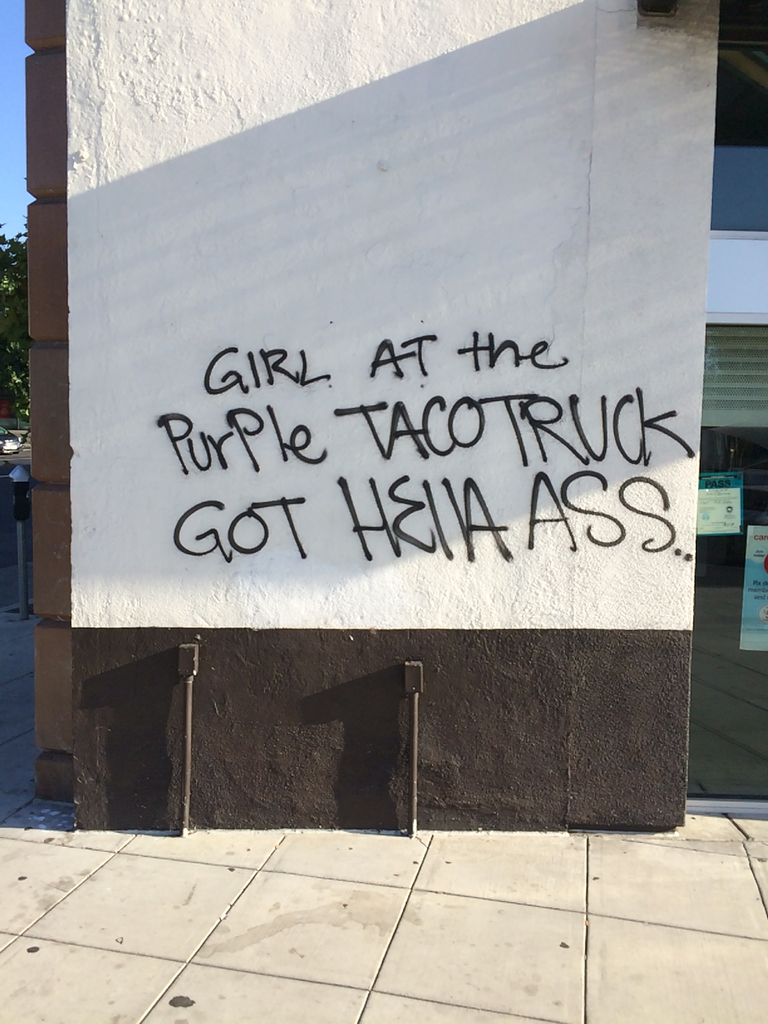 GIRL AT the
PurPle TACO TRUCK
GOT HEllA ASS..
PASS